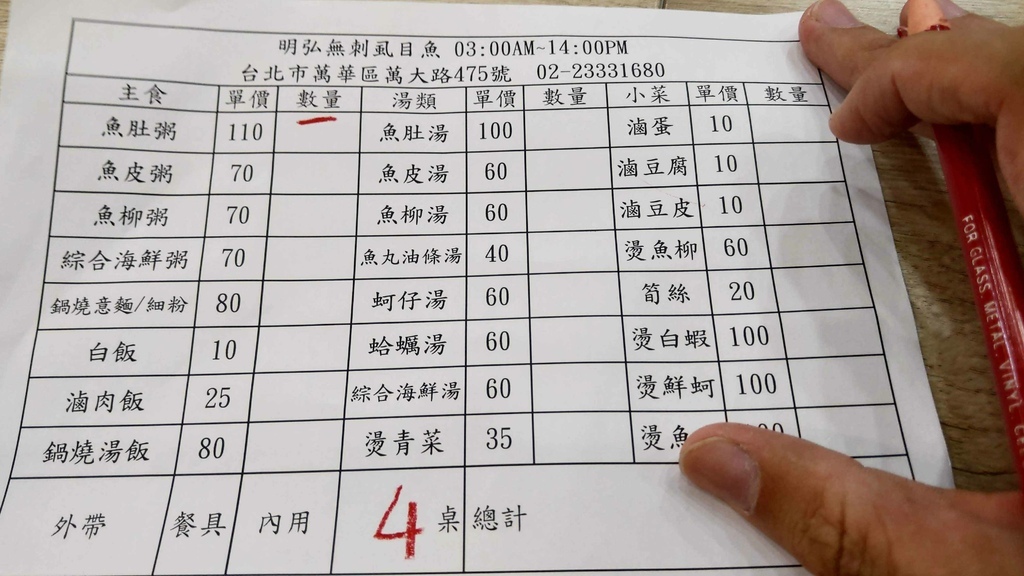 明弘無刺虱目魚 03:00AM~14:00PM
台北市萬華區萬大路475號 02-23331680
主食 單價 數量 湯類 單價 數量 小菜 單價 數量
魚肚粥 110 魚肚湯 100 滷蛋 10
魚皮粥 70 魚皮湯 60 滷豆腐 10
魚柳粥 70 魚柳湯 60 滷豆皮 10
綜合海鮮粥 70 魚丸油條湯 40 燙魚柳 60
鍋燒意麵/細粉 80 蚵仔湯 60 筍絲 20
白飯 10 蛤蠣湯 60 燙白蝦 100
滷肉飯 25 綜合海鮮湯 60 燙鮮蚵 100
鍋燒湯飯 80 燙青菜 35 燙魚
外帶 餐具 內用 4 桌 總計
FOR GLASS METAL VINYL